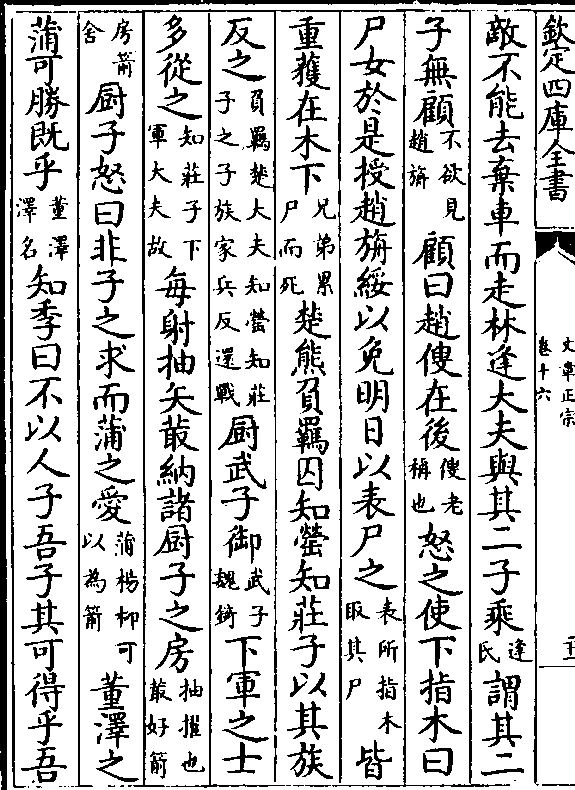 欽定四庫全書
文章正宗
卷十六
敵不能去棄車而走林逢大夫與其二子乘逢氏謂其二
子無顧不欲見趙旃顧曰趙傁在後傁老稱也怒之使下指木曰
尸女於是授趙旃綏以免明日以表尸之表所指木取其尸皆
重獲在木下兄弟累尸而死楚熊負羈囚知罃知莊子以其族
反之負羈楚大夫知罃知莊子之子族家兵反還戰厨武子御武子魏錡下軍之士
多從之知莊子下軍大夫故每射抽矢菆納諸厨子之房抽擢也菆好箭
房箭舍厨子怒曰非子之求而蒲之愛蒲楊柳可以為箭董澤之
蒲可勝既乎董澤澤名知季曰不以人子吾子其可得乎吾